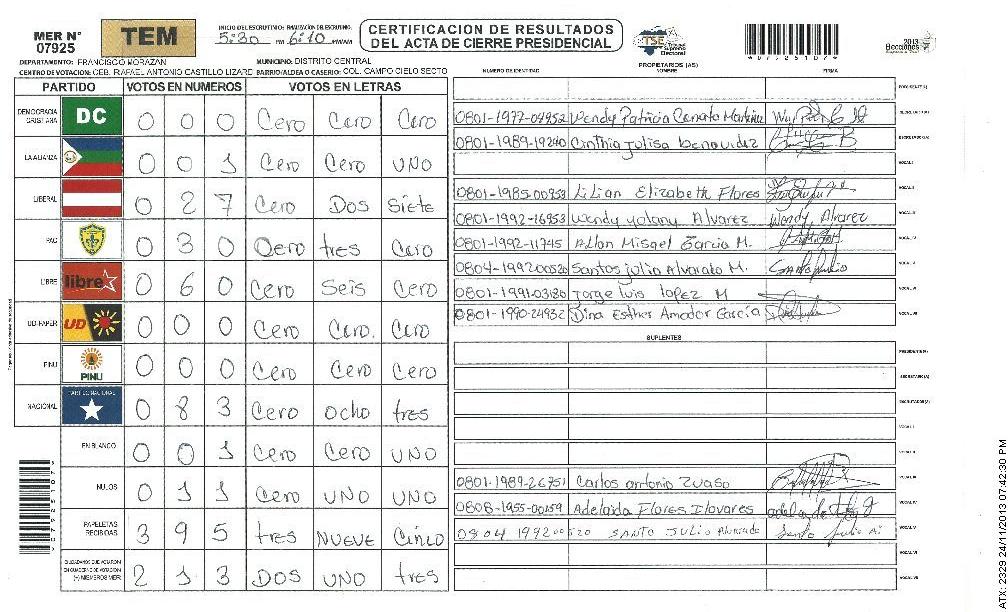 MER N° 07925
TEM
INICIO DEL ESCRUTINIO: 5:30 PM FINALIZACION DEL ESCRUTINIO: 6:10 PM/AM
CERTIFICACION DE RESULTADOS DEL ACTA DE CIERRE PRESIDENCIAL
TSE Tribunal Supremo Electoral
2013 Elecciones
DEPARTAMENTO: FRANCISCO MORAZAN MUNICIPIO: DISTRITO CENTRAL
CENTRO DE VOTACION: CEB. RAFAEL ANTONIO CASTILLO LIZARD BARRIO/ALDEA O CASERIO: COL. CAMPO CIELO SECTO
PROPIETARIOS (AS)
NUMERO DE IDENTIDAD NOMBRE FIRMA
PARTIDO VOTOS EN NUMEROS VOTOS EN LETRAS
DEMOCRACIA CRISTIANA DC 0 0 0 Cero Cero Cero
LA ALIANZA 0 0 1 Cero Cero UNO
LIBERAL 0 2 7 Cero DOS Siete
PAC 0 3 0 Cero tres Cero
LIBRE libre 0 6 0 Cero Seis Cero
UD-FAPER UD 0 0 0 Cero Cero. Cero
PINU PINU 0 0 0 Cero Cero Cero
NACIONAL PARTIDO NACIONAL 0 8 3 Cero ocho tres
EN BLANCO 0 0 1 Cero Cero UNO
NULOS 0 1 1 Cero UNO UNO
PAPELETAS RECIBIDAS 3 9 5 tres NUEVE Cinco
CIUDADANOS QUE VOTARON EN CUADERNO DE VOTACION (+) MIEMBROS MER: 2 1 3 DOS UNO tres
PRESIDENTE(A)
0801-1977-04952 Wendy Patricia Martinez SECRETARIO(A)
0801-1989-19240 Cinthia Julisa benavidez ESCRUTADOR(A)
VOCAL I
0801-1985-00953 Lilian Elizabeth Flores VOCAL II
0801-1992-16953 Wendy yolany Alvarez Wendy Alvarez VOCAL III
0801-1992-11745 Allan Misael Garcia M. VOCAL IV
0804-199200520 Santos julio Alvarado M. Santos julio VOCAL V
0801-1991-03180 Jorge luis lopez M VOCAL VI
0801-1990-24932 Dina Esther Amador García VOCAL VII
SUPLENTES
PRESIDENTE(A)
SECRETARIO(A)
ESCRUTADOR(A)
VOCAL I
VOCAL II
0801-1989-26751 Carlos antonio VOCAL III
0808-1955-00159 Adelaida Flores VOCAL IV
0804 199200520 SANTO JULIO Alvarado Santo Julio A. VOCAL V
VOCAL VI
VOCAL VII
ATX: 2329 24/11/2013 07:42:30 PM